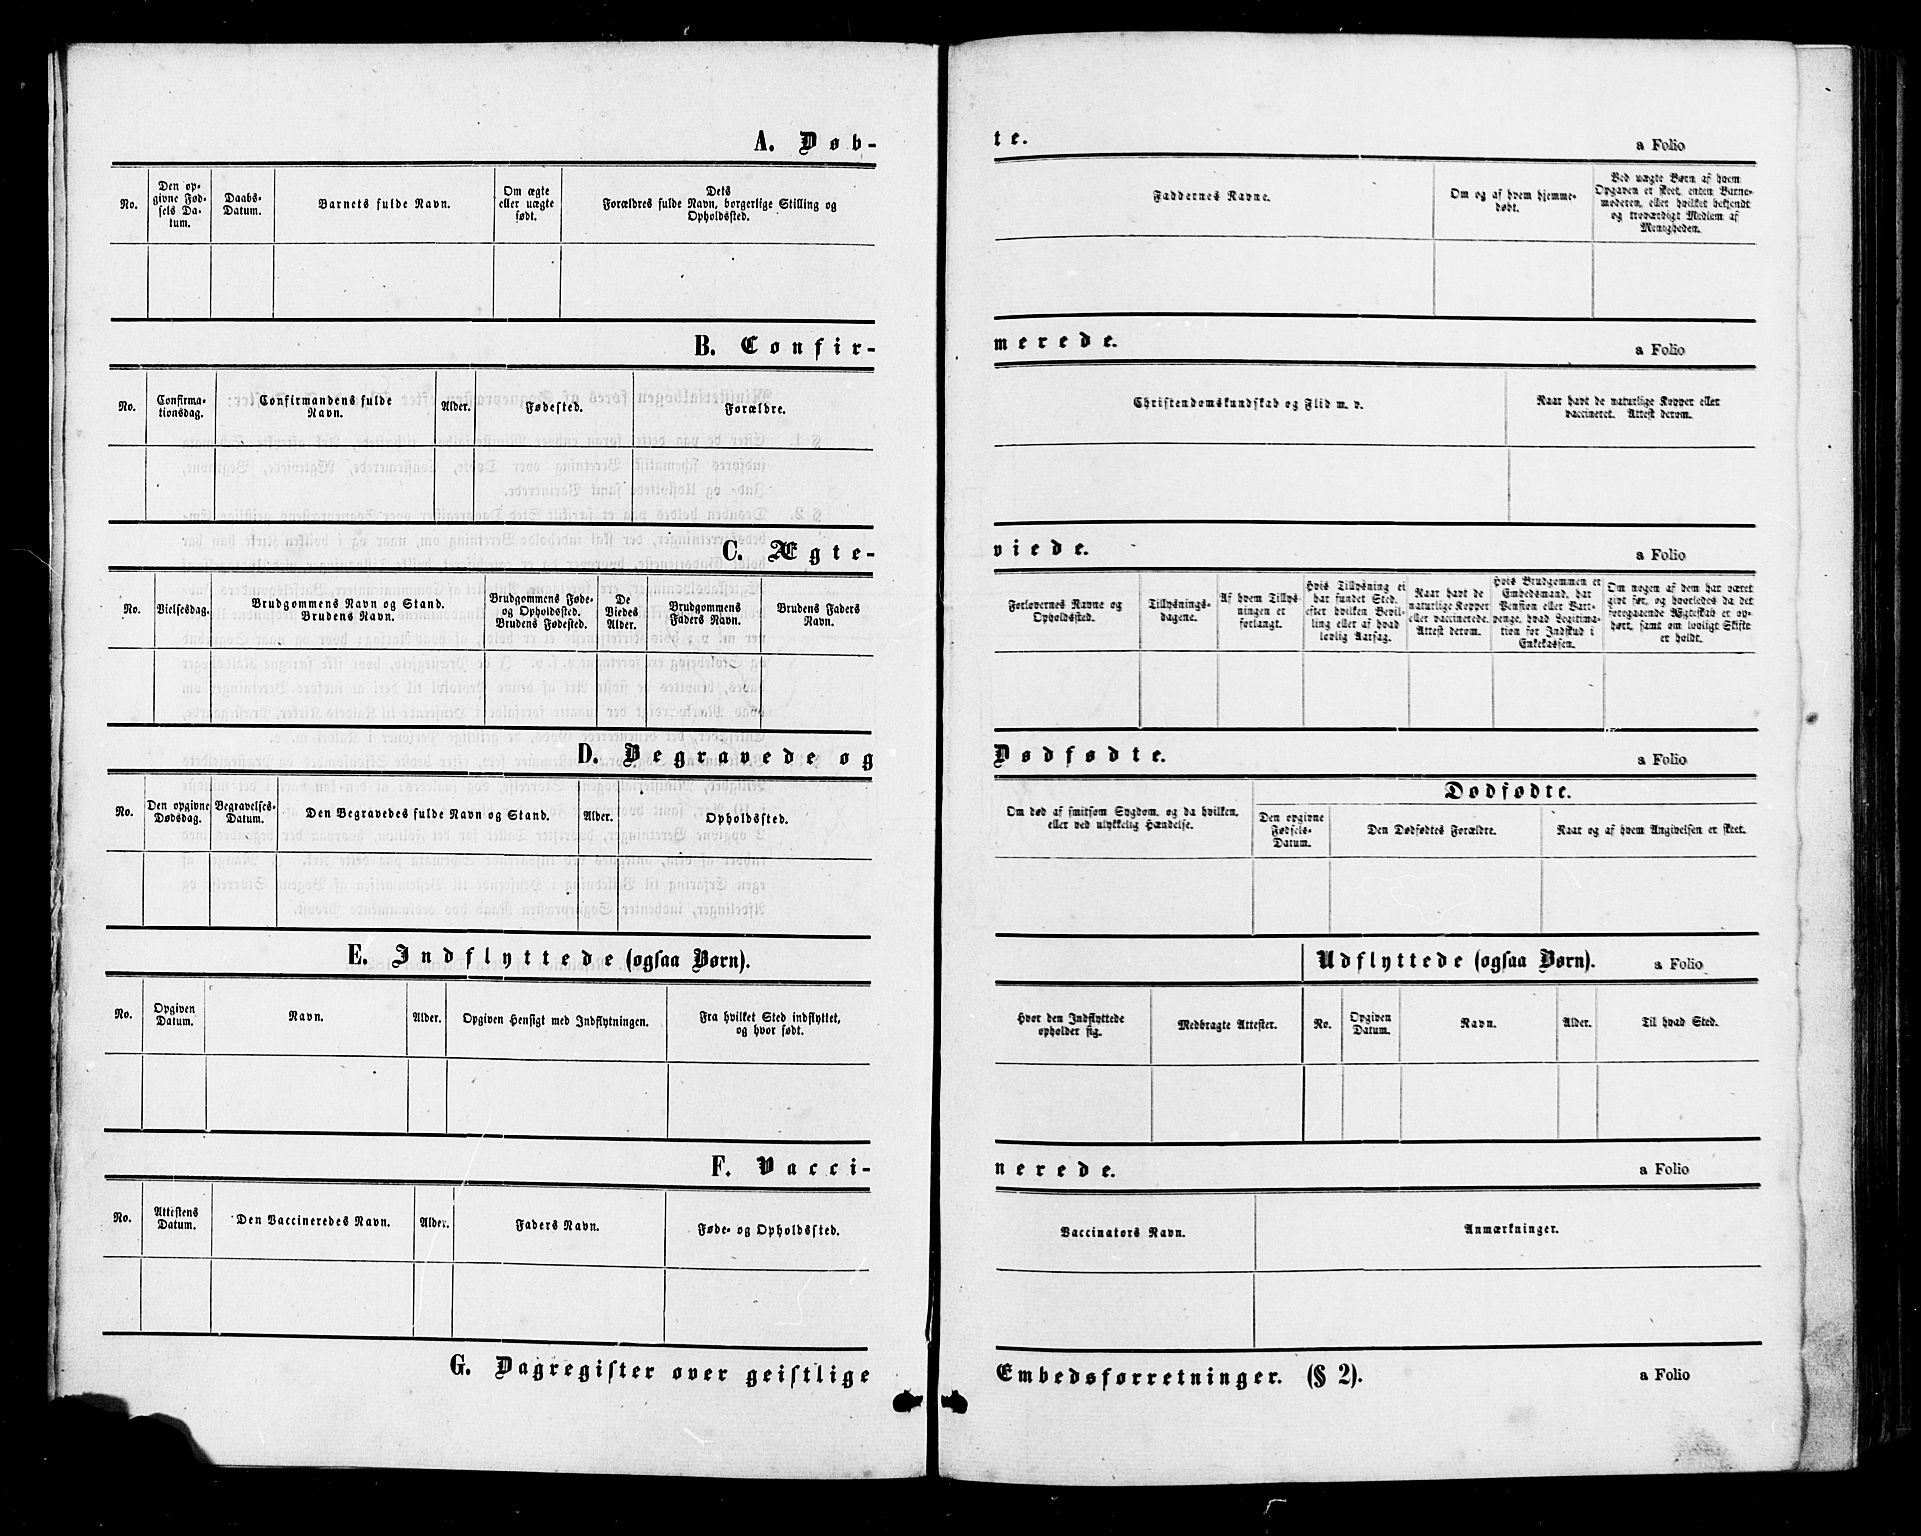 A. Døb-te.
a Folio
No.
Den op-
givne Fød-
sels Da-
tum.
Daabs-
Datum.
Barnets fulde Navn.
Om ægte
eller uægte
født.
Dets
Forældres fulde Navn, borgerlige Stilling og
Opholdssted.
Faddernes Navne.
Om og af hvem hjemme-
døbt.
Ved uægte Børn af hvem
Opgaven er skeet, enten Barne-
moderen, eller hvilket bekjendt
og troværdigt Medlem af
Menigheden.
B. Confir-merede.
a Folio
No.
Confirma-
tionsdag.
Confirmandens fulde
Navn.
Alder.
Fødested.
Forældre.
Christendomskundskab og Flid m. v.
Naar havt de naturlige Kopper eller
vaccineret. Attest derom.
C. Ægte-viede.
a Folio
No.
Vielsesdag.
Brudgommens Navn og Stand.
Brudens Navn.
Brudgommens Føde-
og Opholdssted.
Brudens Fødested.
De
Viedes
Alder.
Brudgommens
Faders Navn.
Brudens Faders
Navn.
Forlovernes Navne og
Opholdssted.
Tillysnings-
dagene.
Af hvem Tillys-
ningen er
forlangt.
Hvis Tillysning ei
har fundet Sted,
efter hvilken Bevil-
ling eller af hvad
lovlig Aarsag.
Naar havt de
naturlige Kopper
eller vaccinerede.
Attest derom.
Hvis Brudgommen er
Embedsmand, har
Pension eller Vart-
penge, hvad Legitima-
tion for Indskud i
Enkekassen.
Om nogen af dem har været
gift før, og hvorledes da det
foregaaende Ægteskab er op-
hørt, samt om lovligt Skifte
er holdt.
D. Begravede og Dødfødte.
a Folio
No.
Den opgivne
Dødsdag.
Begravelses-
Datum.
Den Begravedes fulde Navn og Stand.
Alder.
Opholdssted.
Om død af smitsom Sygdom, og da hvilken,
eller ved ulykkelig Hændelse.
Dødfødte.
Den opgivne
Fødsels-
Datum.
Den Dødfødtes Forældre.
Naar og af hvem Angivelsen er skeet.
E. Indflyttede (ogsaa Børn).
Udflyttede (ogsaa Børn).
a Folio
No.
Opgiven
Datum.
Navn.
Alder.
Opgiven Hensigt med Indflytningen.
Fra hvilket Sted indflyttet,
og hvor født.
Hvor den Indflyttede
opholder sig.
Medbragte Attester.
No.
Opgiven
Datum.
Navn.
Alder.
Til hvad Sted.
F. Vacci-nerede.
a Folio
No.
Attestens
Datum.
Den Vaccineredes Navn.
Alder.
Faders Navn.
Føde- og Opholdssted.
Vaccinators Navn.
Anmærkninger.
G. Dagregister over geistlige Embedsforretninger. (§ 2).
a Folio